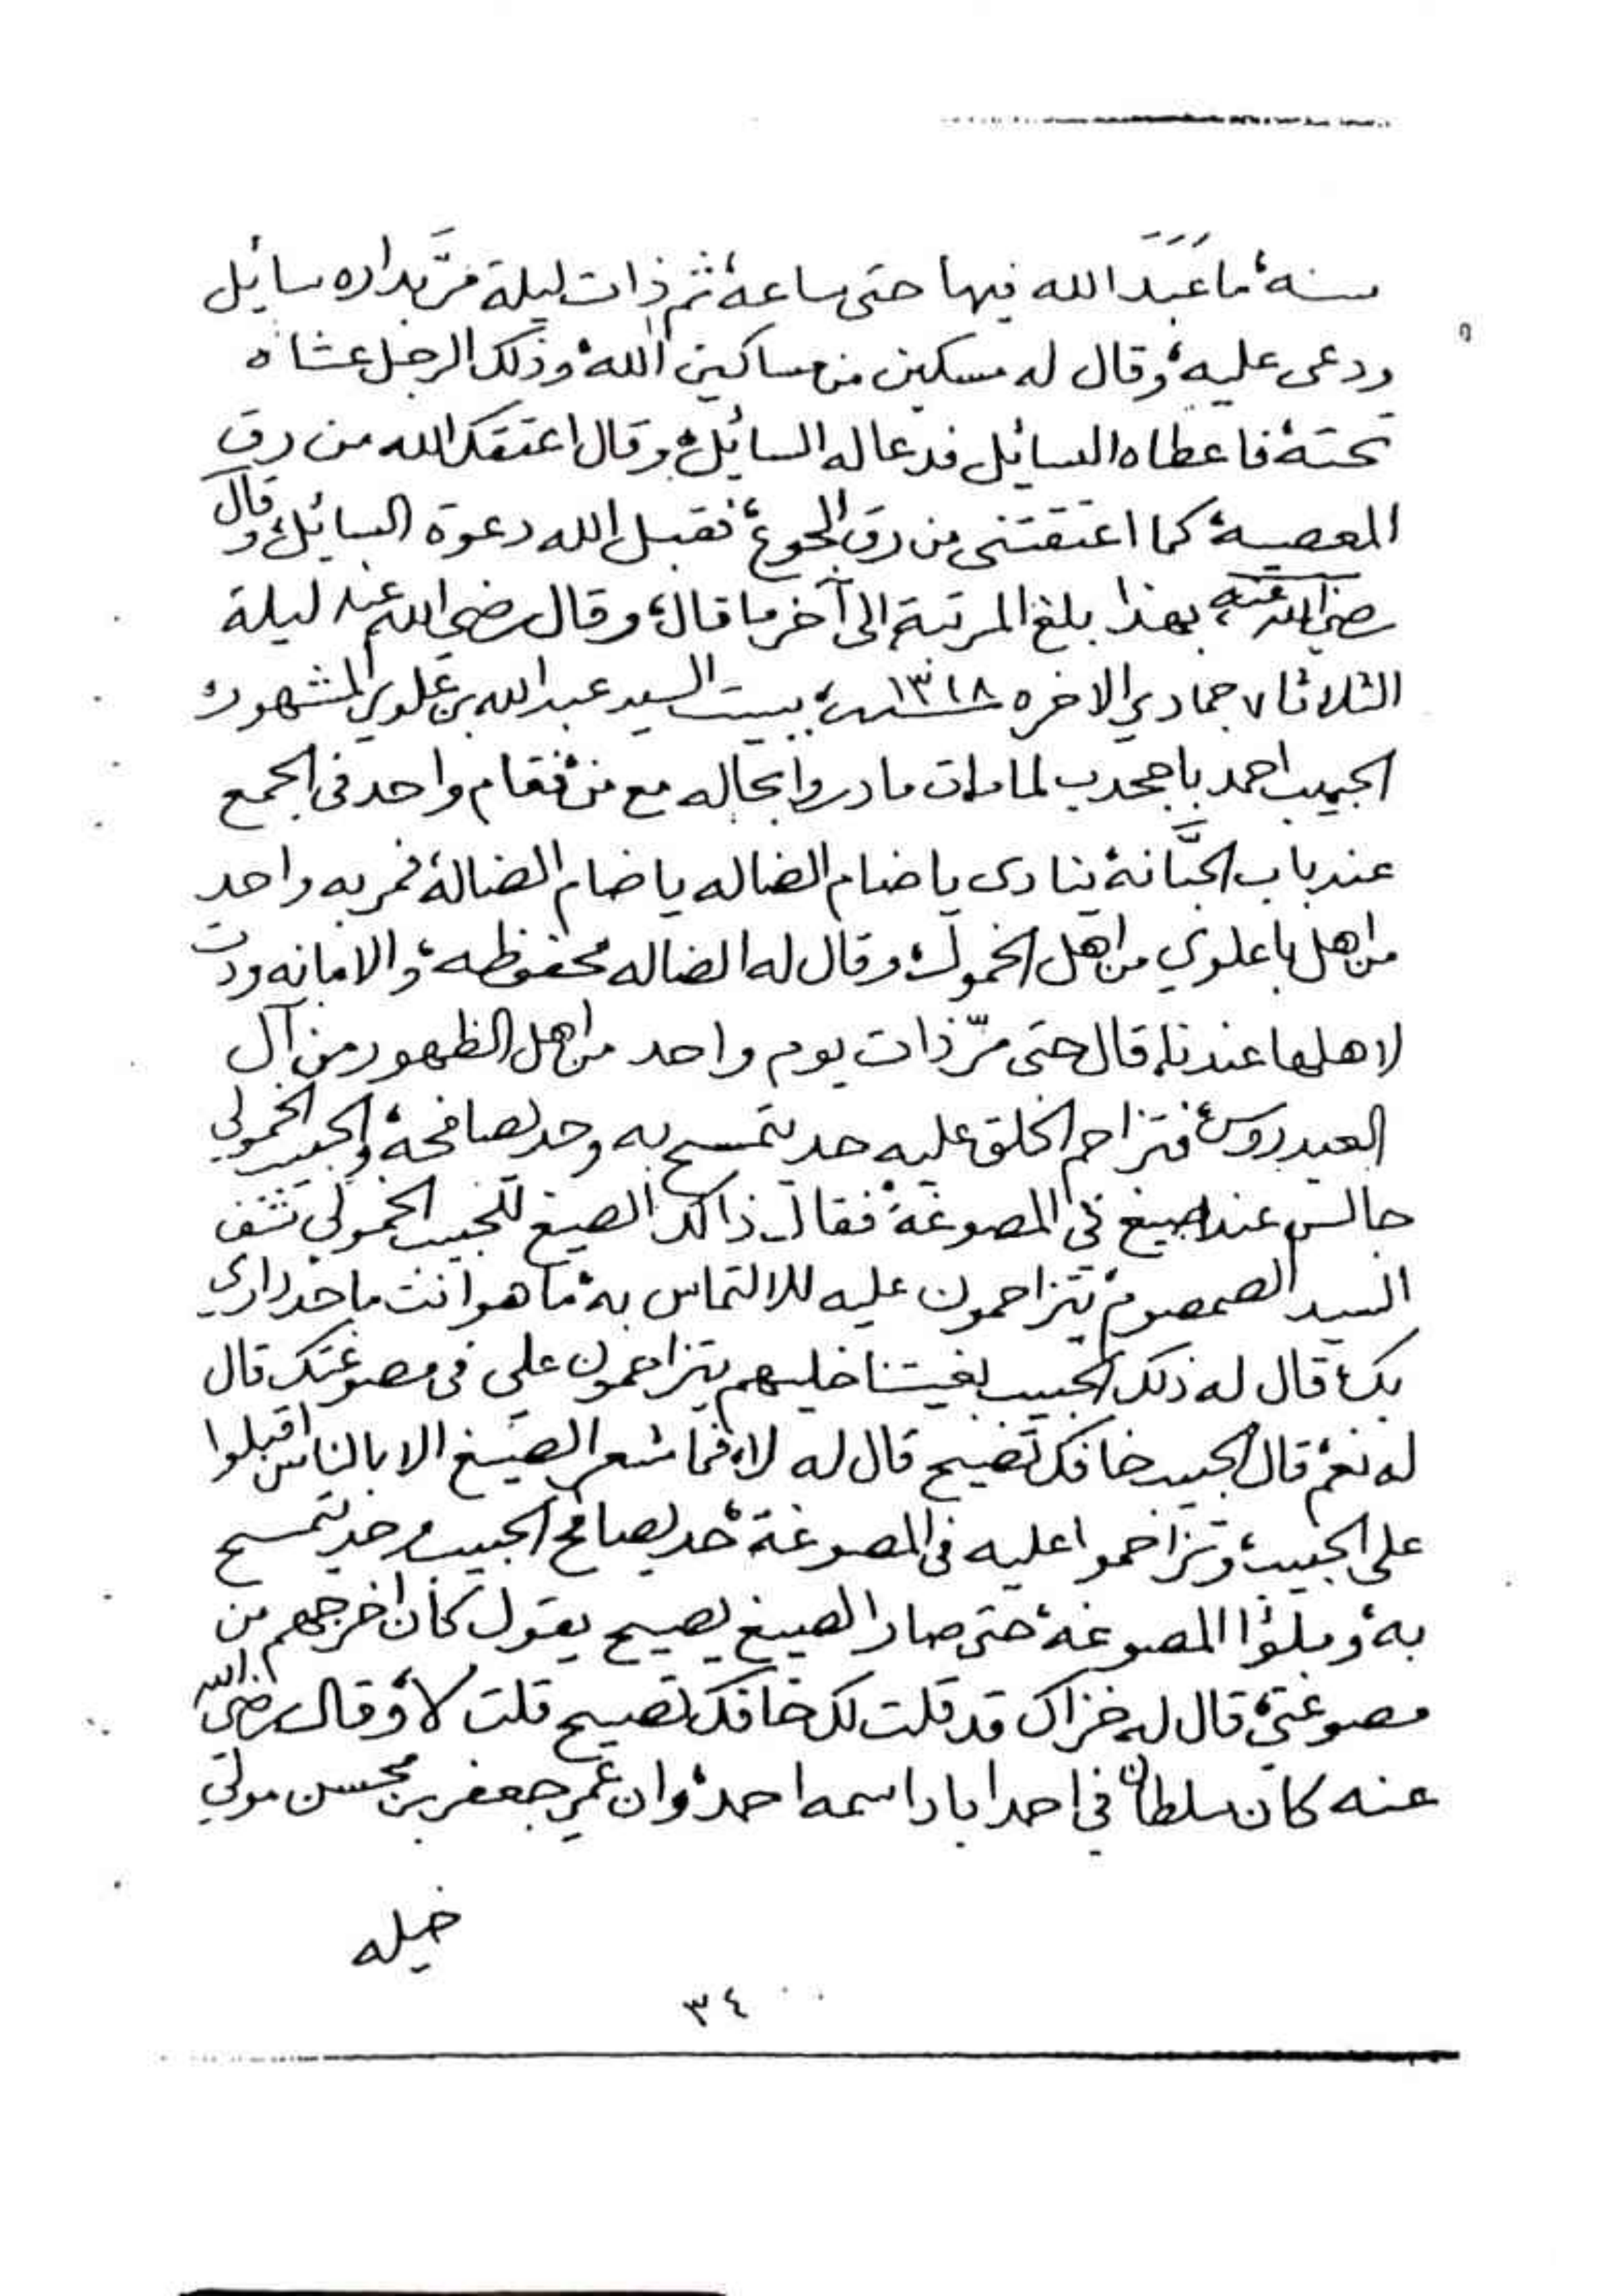 سنة، ما عَبَدَ الله فيها حتى ساعة، ثم ذات ليلة مَرَّ بداره سائيل
ودعى عليه، وقال له مسكين من مساكين الله، وذلك الرجل عشاه
تحته، فاعطاه السائيل فدعا له السائيل، وقال اعتقك الله من رق
المعصية، كما اعتقتني من رق الجوع، فقبل الله دعوة السائيل، وقال
رضي الله عنه، بهذا بلغ المرتبة، الى آخر ما قال، وقال رضي الله عنه ليلة
الثلاثا ٧ جمادي الاخره سنة ١٣١٨، ببيت السيد عبدالله بن علوي المشهور
الحبيب احمد باجحدب لما مات ما دروا بحاله مع من، فقام واحد في الجمع
عند باب الجبَّانة، ينادى يا ضام الضاله يا ضام الضالة، فمر به واحد
من اهل باعلوي من اهل الخمول، وقال له الضاله محفوظه، والامانه ودت
لاهلها عندنا، قال حتى مرّ ذات يوم واحد من اهل الظهور من آل
العيدروس، فتزاحم الخلق عليه حد يتمسح به وحد يصافحه، والحبيب الخمولي
جالس عند صيغ في المصوغة، فقال ذاك الصيغ للحبيب الخمولي تشف
السيد الصمصوم، يتزاحمون عليه للالتماس به، ما هو انت ما حد داري
بك، قال له ذلك الحبيب بغيتنا خليهم يتزاحمون علي في مصوغتك قال
له نعم، قال الحبيب خافك تصيح قال له لا، فما شعر الصيّغ الا بالناس اقبلوا
على الحبيب، وتزاحموا عليه في المصوغة، حد يصافح الحبيب وحد يتمسح
به، وملؤا المصوغة، حتى صار الصيغ يصيح يقول كان اخرجهم من
مصوغتي، قال له خزاك قد قلت لك خافك تصيح قلت لا، وقال رضي الله
عنه كان سلطان في احداباد اسمه احمد، وان عمر جعفر بن محسن مولى
خيله
٣٤